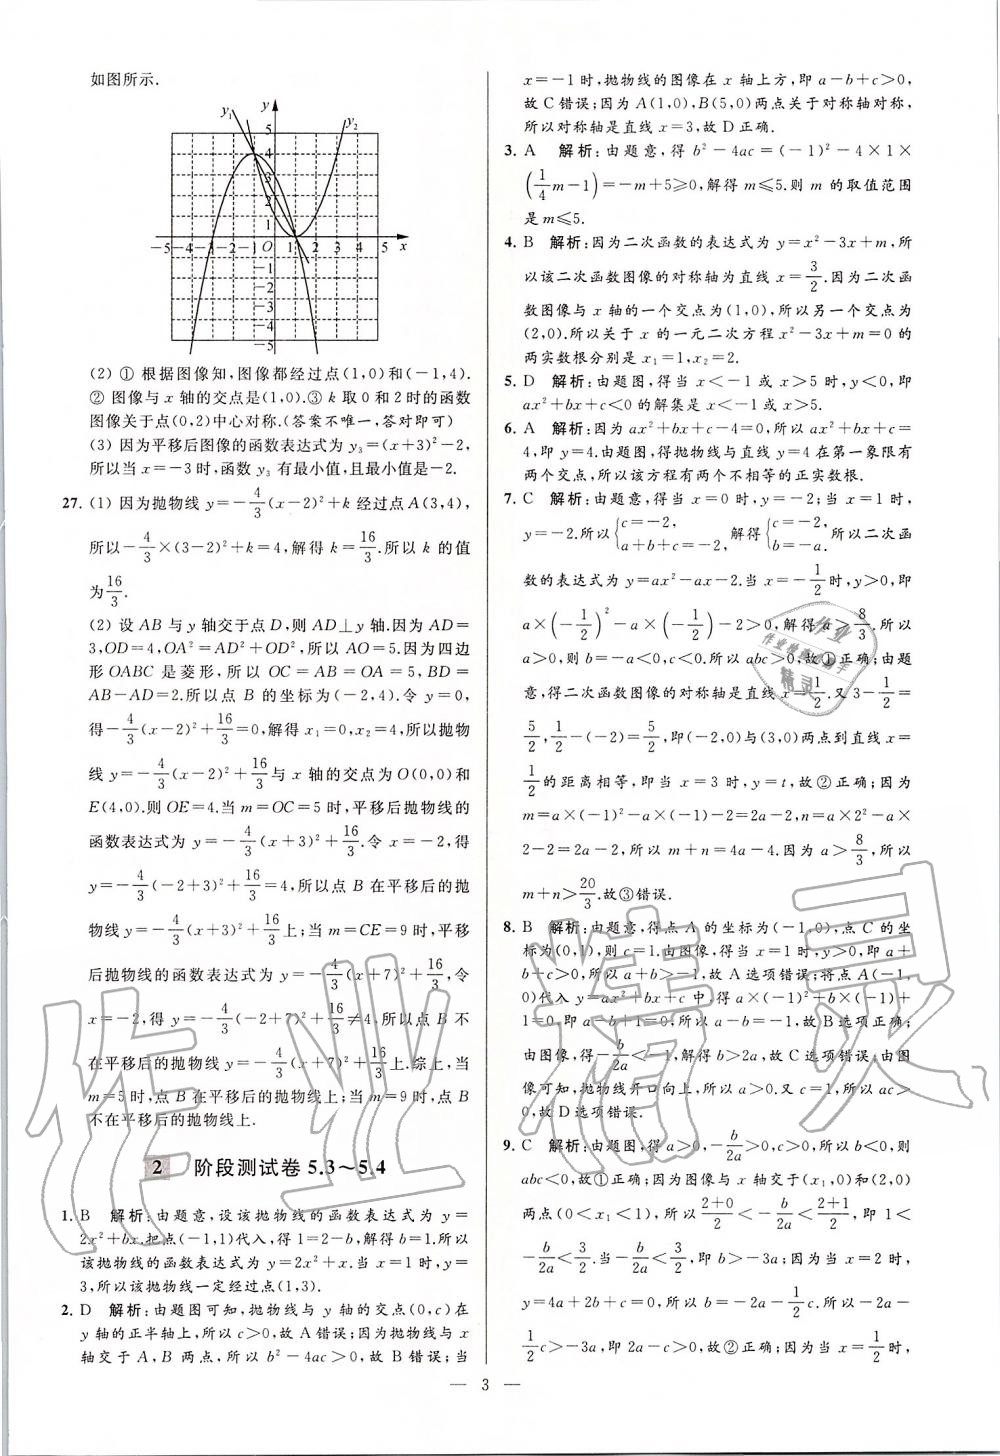 如图所示.
y₁ y y₂
5
4
3
2
1
-5-4-3-2-1 O 1 2 3 4 5 x
-1
-2
-3
-4
-5
(2) ① 根据图像知,图像都经过点(1,0)和(-1,4).
② 图像与 x 轴的交点是(1,0).③ k 取 0 和 2 时的函数
图像关于点(0,2)中心对称.(答案不唯一,答对即可)
(3) 因为平移后图像的函数表达式为 y₃=(x+3)²-2,
所以当 x=-3 时,函数 y₃ 有最小值,且最小值是-2.
27. (1) 因为抛物线 y=-4/3(x-2)²+k 经过点 A(3,4),
所以-4/3×(3-2)²+k=4,解得 k=16/3.所以 k 的值
为16/3.
(2) 设 AB 与 y 轴交于点 D,则 AD⊥y 轴.因为 AD=
3,OD=4,OA²=AD²+OD²,所以 AO=5.因为四边
形 OABC 是菱形,所以 OC=AB=OA=5,BD=
AB-AD=2.所以点 B 的坐标为(-2,4).令 y=0,
得-4/3(x-2)²+16/3=0,解得 x₁=0,x₂=4,所以抛物
线 y=-4/3(x-2)²+16/3与 x 轴的交点为 O(0,0)和
E(4,0).则 OE=4.当 m=OC=5 时,平移后抛物线的
函数表达式为 y=-4/3(x+3)²+16/3.令 x=-2,得
y=-4/3(-2+3)²+16/3=4,所以点 B 在平移后的抛
物线 y=-4/3(x+3)²+16/3上;当 m=CE=9 时,平移
后抛物线的函数表达式为 y=-4/3(x+7)²+16/3,令
x=-2,得 y=-4/3(-2+7)²+16/3≠4,所以点 B 不
在平移后的抛物线 y=-4/3(x+7)²+16/3上.综上,当
m=5 时,点 B 在平移后的抛物线上;当 m=9 时,点 B
不在平移后的抛物线上.
2 阶段测试卷 5.3～5.4
1. B 解析:由题意,设该抛物线的函数表达式为 y=
2x²+bx.把点(-1,1)代入,得 1=2-b,解得 b=1.所以
该抛物线的函数表达式为 y=2x²+x.当 x=1 时,y=
3,所以该抛物线一定经过点(1,3).
2. D 解析:由题图可知,抛物线与 y 轴的交点(0,c)在
y 轴的正半轴上,所以 c>0,故 A 错误;因为抛物线与 x
轴交于 A,B 两点,所以 b²-4ac>0,故 B 错误;当
x=-1 时,抛物线的图像在 x 轴上方,即 a-b+c>0,
故 C 错误;因为 A(1,0),B(5,0)两点关于对称轴对称,
所以对称轴是直线 x=3,故 D 正确.
3. A 解析:由题意,得 b²-4ac=(-1)²-4×1×
(1/4m-1)=-m+5≥0,解得 m≤5.则 m 的取值范围
是 m≤5.
4. B 解析:因为二次函数的表达式为 y=x²-3x+m,所
以该二次函数图像的对称轴为直线 x=3/2.因为二次函
数图像与 x 轴的一个交点为(1,0),所以另一个交点为
(2,0).所以关于 x 的一元二次方程 x²-3x+m=0 的
两实数根分别是 x₁=1,x₂=2.
5. D 解析:由题图,得当 x<-1 或 x>5 时,y<0,即
ax²+bx+c<0 的解集是 x<-1 或 x>5.
6. A 解析:因为 ax²+bx+c-4=0,所以 ax²+bx+c=
4,即 y=4.由题图,得抛物线与直线 y=4 在第一象限有
两个交点,所以该方程有两个不相等的正实数根.
7. C 解析:由题意,得当 x=0 时,y=-2;当 x=1 时,
y=-2.所以{c=-2, a+b+c=-2, 解得{c=-2, b=-a.所以二次函
数的表达式为 y=ax²-ax-2.当 x=-1/2时,y>0,即
a×(-1/2)²-a×(-1/2)-2>0,解得 a>8/3.所以
a>0,则 b<0,c<0.所以 abc>0,故①正确;由题
意,得二次函数图像的对称轴是直线 x=1/2.又 3-1/2=
5/2,1/2-(-2)=5/2,即(-2,0)与(3,0)两点到直线 x=
1/2的距离相等,即当 x=3 时,y=t,故②正确;因为
m=a×(-1)²-a×(-1)-2=2a-2,n=a×2²-a×
2-2=2a-2,所以 m+n=4a-4.因为 a>8/3,所以
m+n>20/3.故③错误.
8. B 解析:由题意,得点 A 的坐标为(-1,0),点 C 的坐
标为(0,1),则 c=1.由图像,得当 x=1 时,y>0,即 a+
b+c>0,所以 a+b>-1,故 A 选项错误;将点 A(-1,
0)代入 y=ax²+bx+c 中,得 a×(-1)²+b×(-1)+
1=0,即 a-b+1=0,所以 a-b=-1,故 B 选项正确;
由图像,得-b/2a<-1,解得 b>2a,故 C 选项错误;由图
像可知,抛物线开口向上,所以 a>0.又 c=1,所以 ac>
0,故 D 选项错误.
9. C 解析:由题图,得 a>0,-b/2a>0,c>0,所以 b<0,则
abc<0,故①正确;因为图像与 x 轴交于(x₁,0)和(2,0)
两点(0<x₁<1),所以 2+0/2<-b/2a<2+1/2,即 1<
-b/2a<3/2.当-b/2a<3/2时,即 b>-3a;因为当 x=2 时,
y=4a+2b+c=0,所以 b=-2a-1/2c.所以-2a-
1/2c>-3a,即 2a-c>0,故②正确;因为当 x=1/2时,
— 3 —